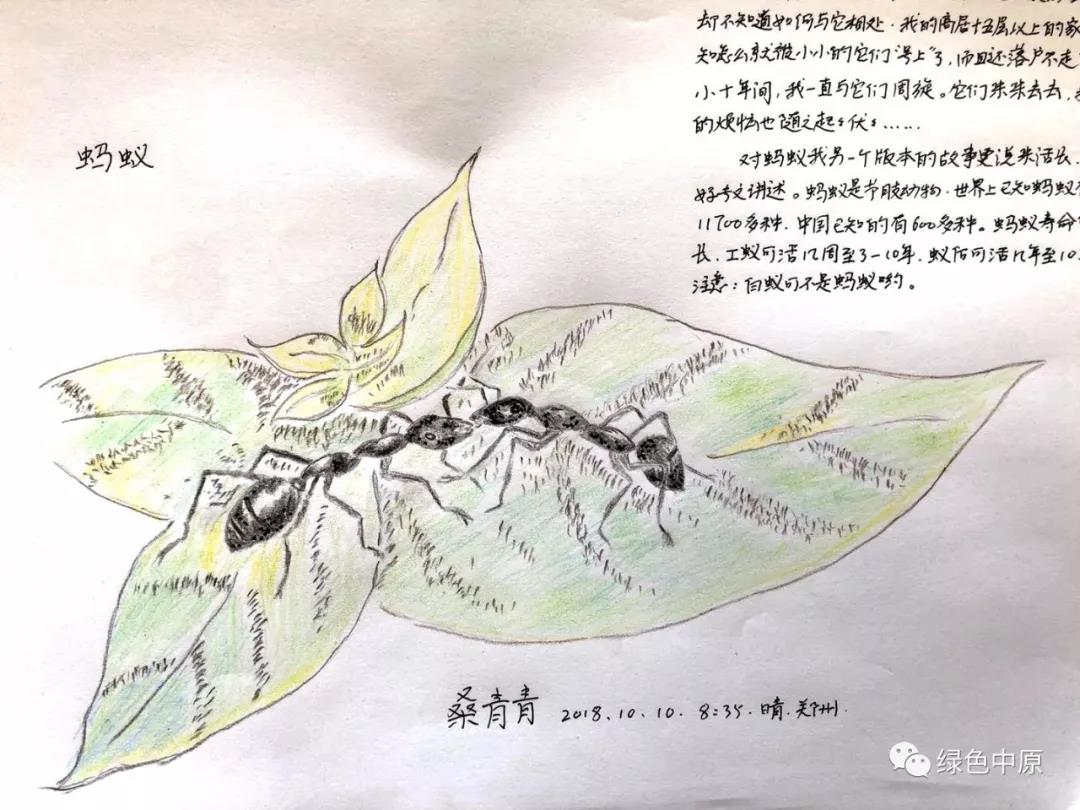 却不知道如何与它相处.我的高居十五层以上的家
知怎么就被小小的它们“号上”了,而且还落户不走
小十年间,我一直与它们周旋。它们来来去去,
的烦恼也随之起起伏伏……
对蚂蚁我另一个版本的故事更说来话长.
好专文讲述。蚂蚁是节肢动物.世界上已知蚂蚁
11700多种.中国已知的有600多种。蚂蚁寿命
长.工蚁可活几周至3-10年.蚁后可活几年至10
注意:白蚁可不是蚂蚁哟。
蚂蚁
桑青青 2018.10.10. 8:35.晴.郑州.
绿色中原